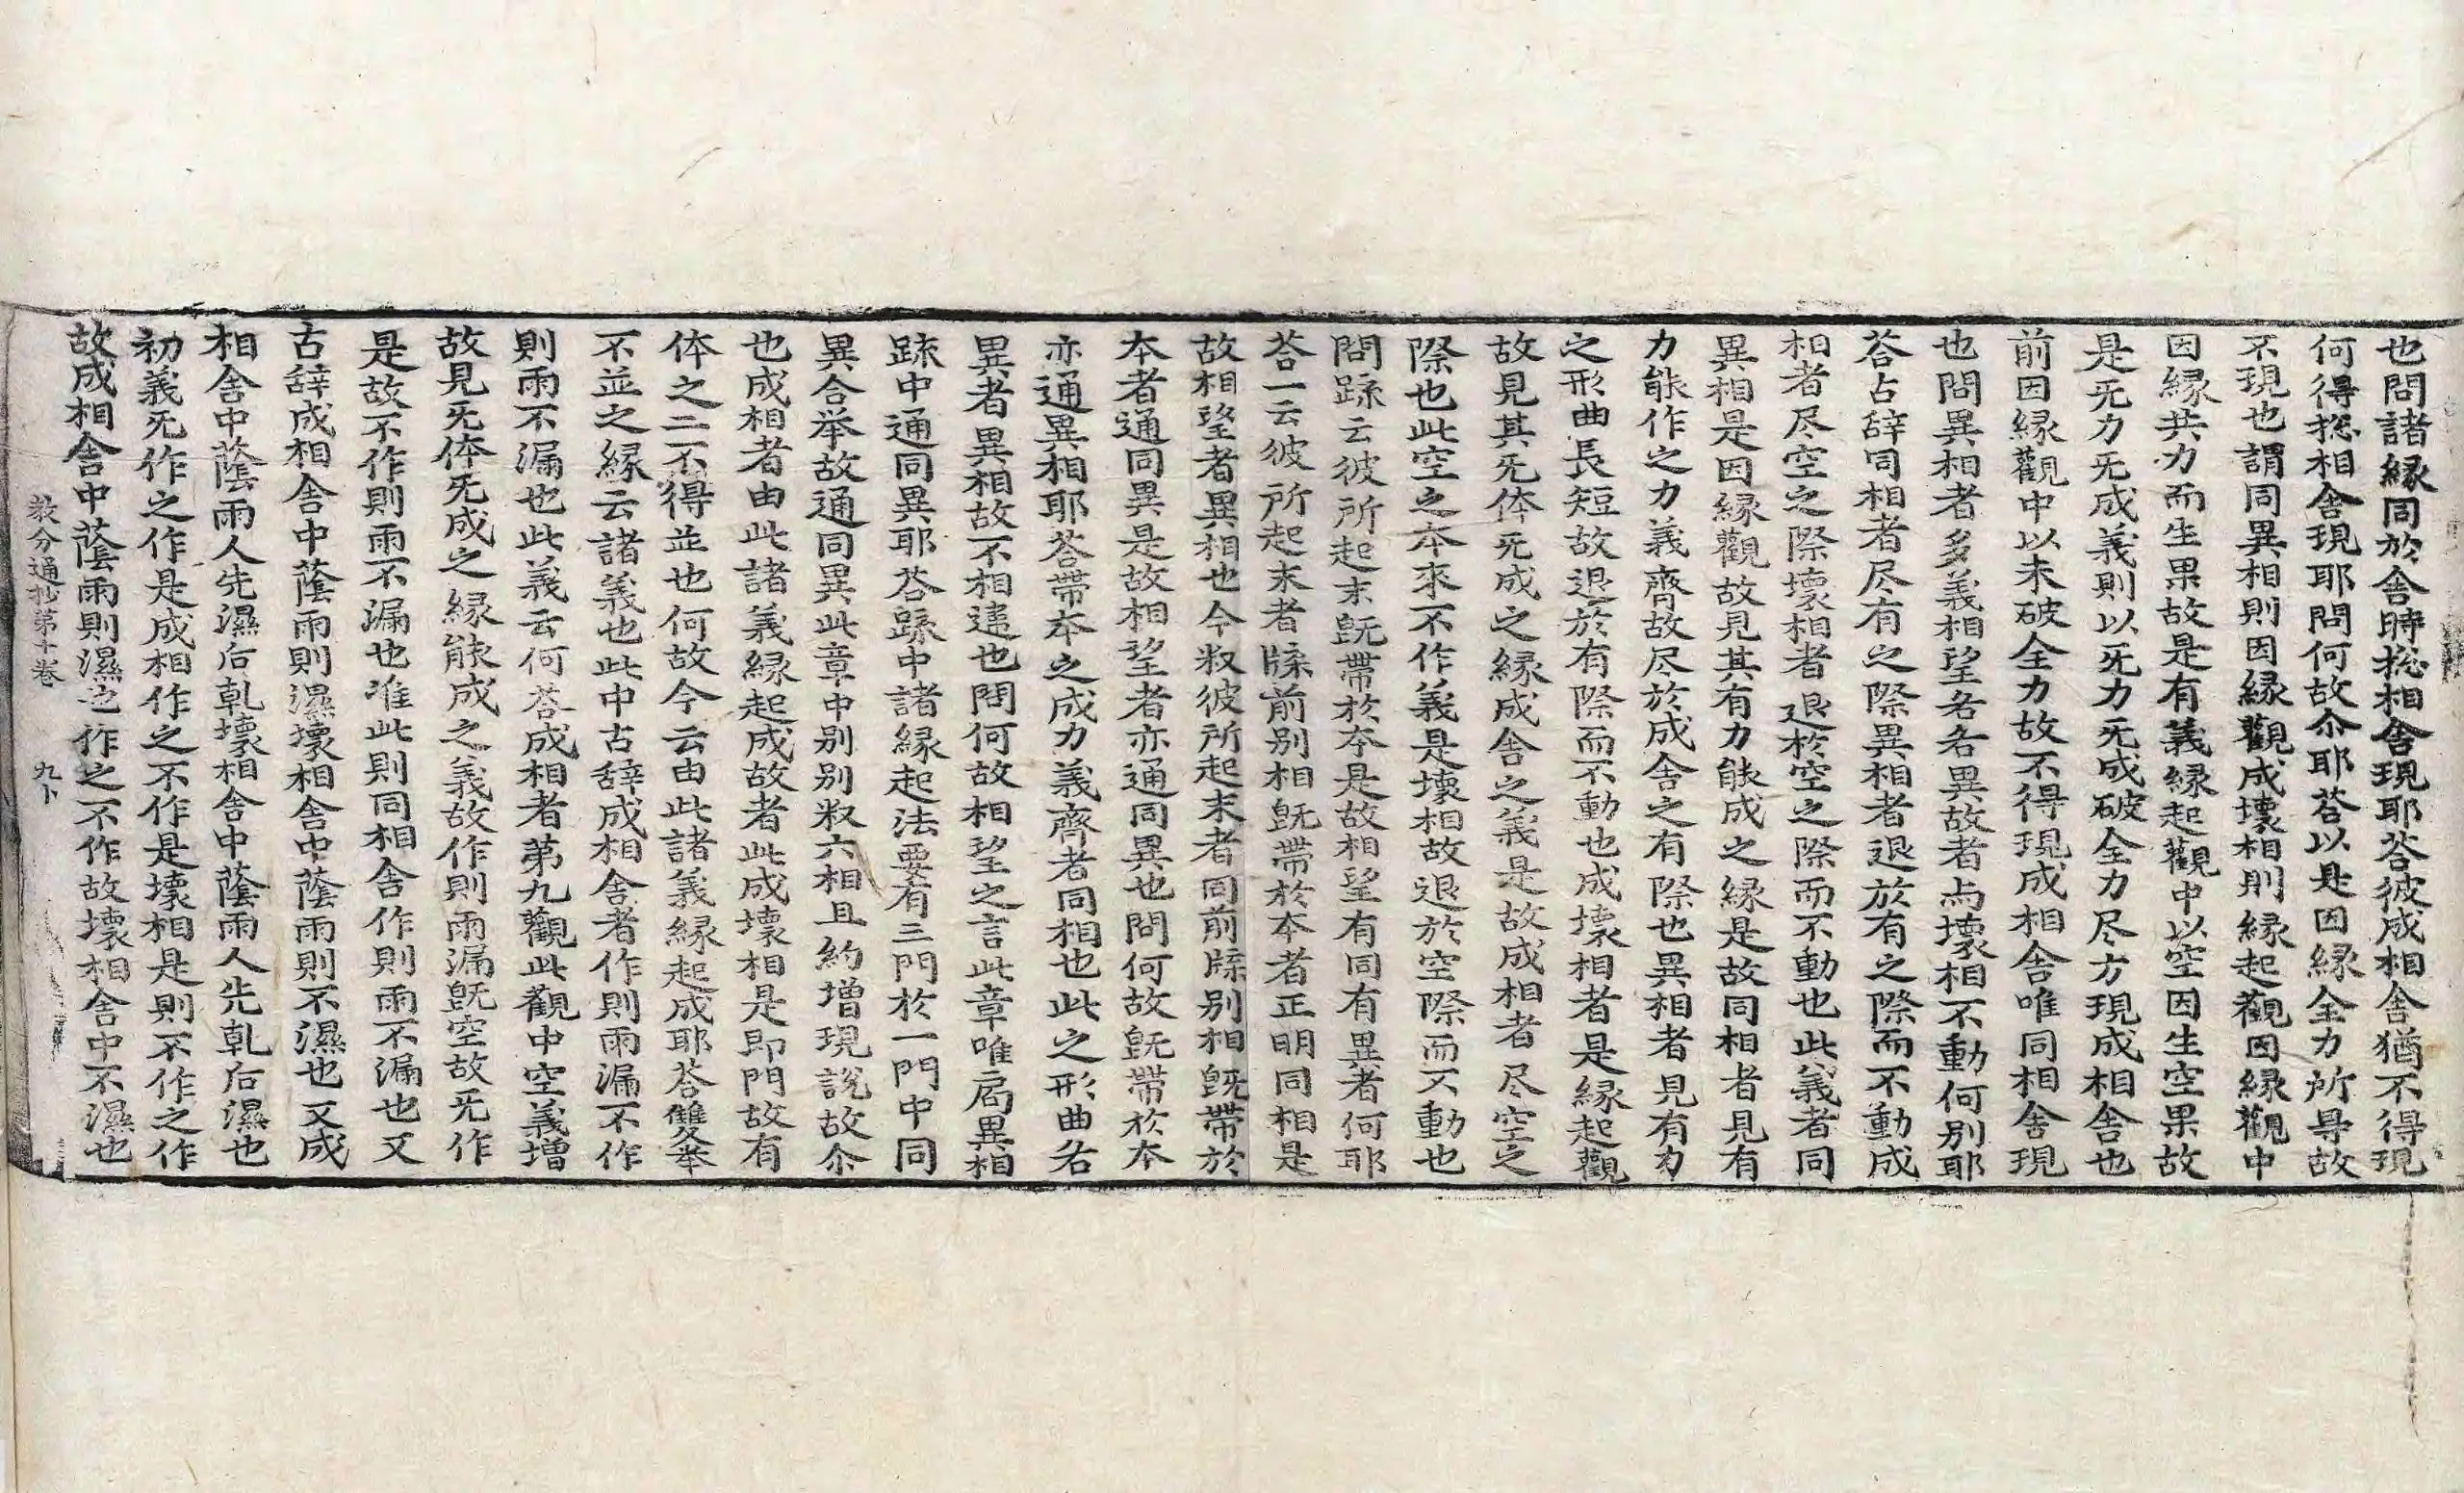 也問諸縁同於舍時捴相舍現耶荅彼成相舍猶不得現
何得捴相舍現耶問何故尒耶荅以是因縁全力所㝵故
不現也謂同異相則因縁觀成壞相則縁起觀因縁觀中
因縁共力而生果故是有義縁起觀中以空因生空果故
是旡力旡成義則以旡力旡成破全力尽方現成相舍也
前因縁觀中以未破全力故不得現成相舍唯同相舍現
也問異相者多義相望各各異故者与壞相不動何別耶
荅占辞同相者尽有之際異相者退於有之際而不動成
相者尽空之際壞相者退於空之際而不動也此義者同
異相是因縁觀故見其有力能成之縁是故同相者見有
力能作之力義齊故尽於成舍之有際也異相者見有力
之形曲長短故退於有際而不動也成壞相者是縁起觀
故見其旡体旡成之縁成舍之義是故成相者尽空之
際也此空之本來不作義是壞相故退於空際而不動也
問䟽云彼所起末旣帶於夲是故相望有同有異者何耶
荅一云彼所起末者牒前別相旣帶於夲者正明同相是
故相望者異相也今釈彼所起末者同前牒別相旣帶於
夲者通同異是故相望者亦通同異也問何故旣帶於夲
亦通異相耶荅帶夲之成力義齊者同相也此之形曲名
異者異相故不相違也問何故相望之言此章唯局異相
䟽中通同異耶荅䟽中諸縁起法要有三門於一門中同
異合举故通同異此章中別別釈六相且約增現說故尒
也成相者由此諸義縁起成故者此成壞相是即門故有
体之二不得並也何故今云由此諸義縁起成耶荅雙举
不並之縁云諸義也此中古辞成相舍者作則雨漏不作
則雨不漏也此義云何荅成相者第九觀此觀中空義增
故見旡体旡成之縁能成之義故作則雨漏旣空故旡作
是故不作則雨不漏也准此則同相舍作則雨不漏也又
古辞成相舍中蔭雨則濕壞相舍中蔭雨則不濕也又成
相舍中蔭雨人先濕后乹壞相舍中蔭雨人先乹后濕也
初義旡作之作是成相作之不作是壞相是則不作之作
故成相舍中蔭雨則濕也作之不作故壞相舍中不濕也
教分通抄第十卷　九卜